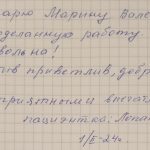 дарю Марину Вале
оделанную работу.
вольна!
ыв приветлив, добр
приятными впечат
пациентка: Лопат
1/II-24г.